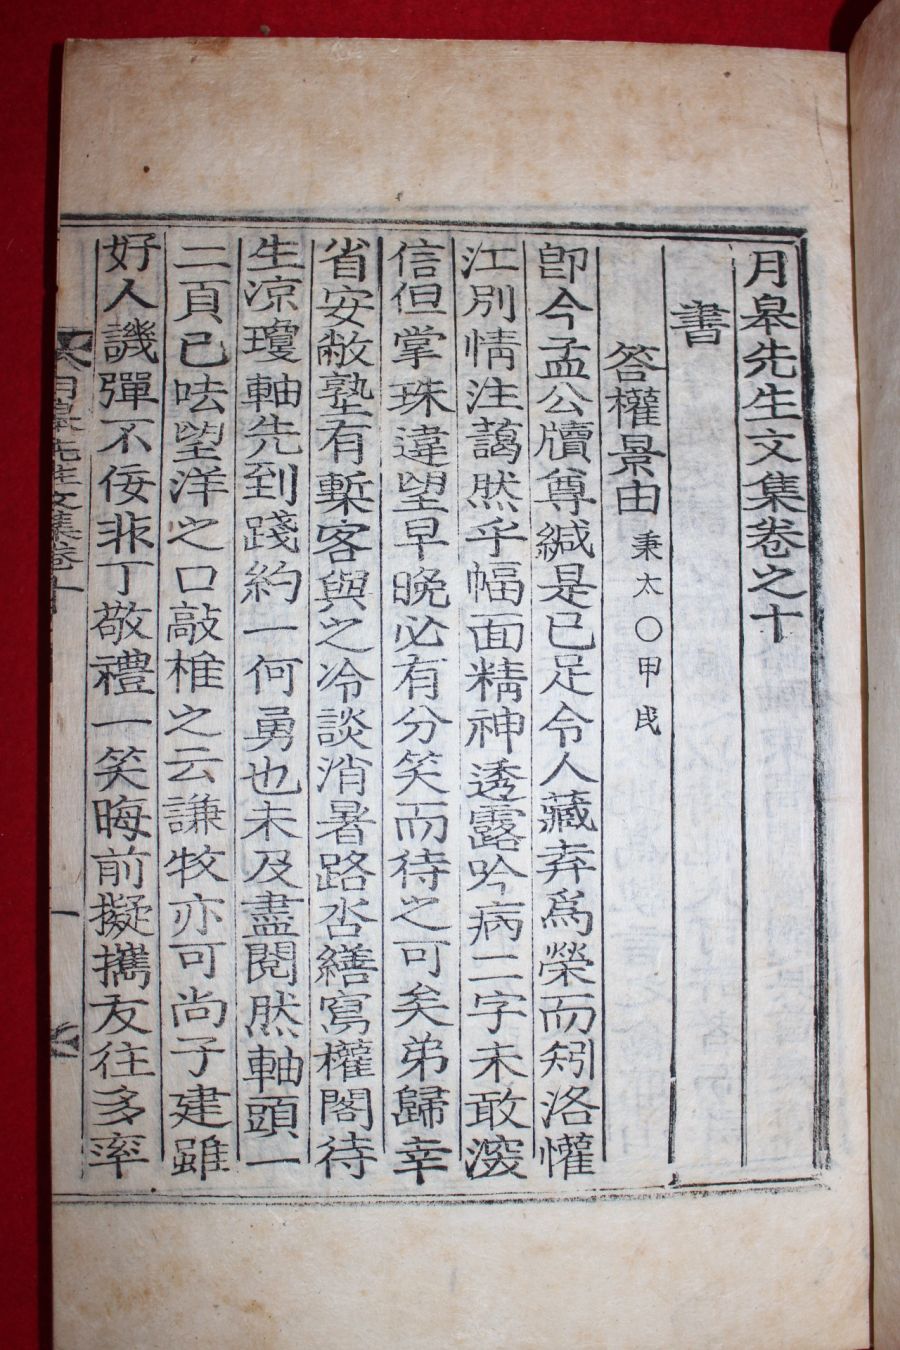 月皐先生文集卷之十
書
答權景由 秉太○甲戌
卽今孟公牘尊緘是已足令人藏弆爲榮而矧洛懽
江別情注藹然乎幅面精神透露吟病二字未敢深
信但掌珠違望早晩必有分笑而待之可矣弟歸幸
省安敝塾有槧客與之冷談消暑路呇繕寫權閣待
生涼瓊軸先到踐約一何勇也未及盡閱然軸頭一
二頁已呿望洋之口敲椎之云謙牧亦可尙子建雖
好人譏彈不佞非丁敬禮一笑晦前擬攜友往多率
月皐先生文集卷十
一